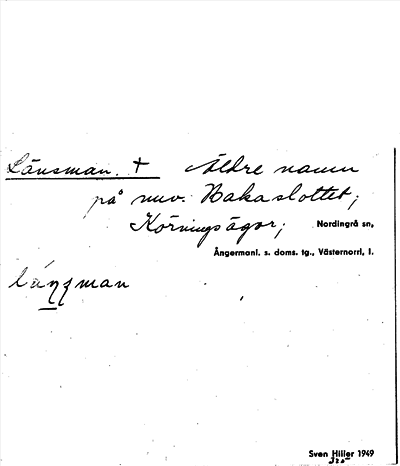 Länsman. † Äldre namn
på nuv. Bakaslottet;
Körningsägor; Nordingrå sn,
Ångermanl. s. doms. tg., Västernorrl. l.
Sven Hiller 1949